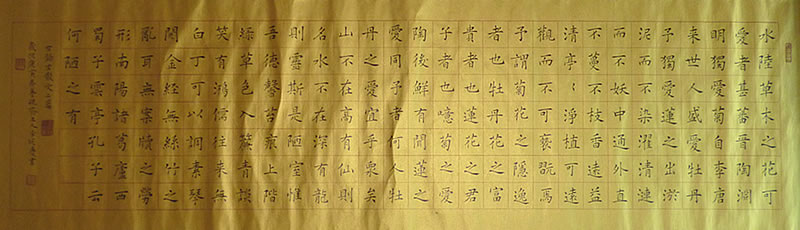 水陸草木之花可
愛者甚蕃晉陶淵
明獨愛菊自李唐
来世人盛愛牡丹
予獨愛蓮之出淤
泥而不染濯清漣
而不妖中通外直
不蔓不枝香遠益
清亭々淨植可遠
觀而不可褻翫焉
予謂菊花之隱逸
者也牡丹花之富
貴者也蓮花之君
子者也噫菊之愛
陶後鮮有聞蓮之
愛同予者何人牡
丹之愛宜乎衆矣
山不在高有仙則
名水不在深有龍
則靈斯是陋室惟
吾德馨苔痕上階
綠草色入簾青談
笑有鴻儒往来無
白丁可以調素琴
閱金經無絲竹之
亂耳無案牘之勞
形南陽諸葛廬西
蜀子雲亭孔子云
何陋之有